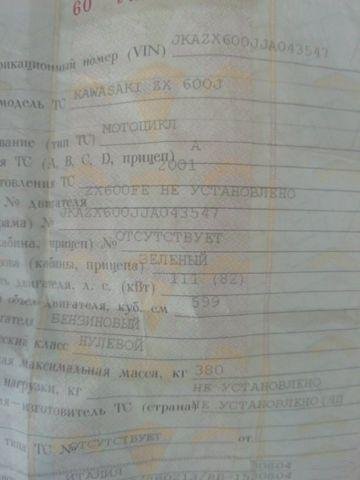 60
фикационный номер (VIN) JKAZX600JJA043547
модель ТС KAWASAKI ZX 600J
вание (тип ТС) МОТОЦИКЛ
я ТС (A, B, C, D, прицеп) A
товления ТС 2001
№ двигателя ZX600FE НЕ УСТАНОВЛЕНО
рама) № JKAZX600JJA043547
абина, прицеп) № ОТСУТСТВУЕТ
ова (кабины, прицепа) ЗЕЛЕНЫЙ
ть двигателя, л. с. (кВт) 111 (82)
объем двигателя, куб. см 599
гателя БЕНЗИНОВЫЙ
еский класс НУЛЕВОЙ
ая максимальная масса, кг 380
нагрузки, кг НЕ УСТАНОВЛЕНО
изготовитель ТС (страна) НЕ УСТАНОВЛЕНО
типа ТС № ОТСУТСТВУЕТ от
ИТАЛИЯ